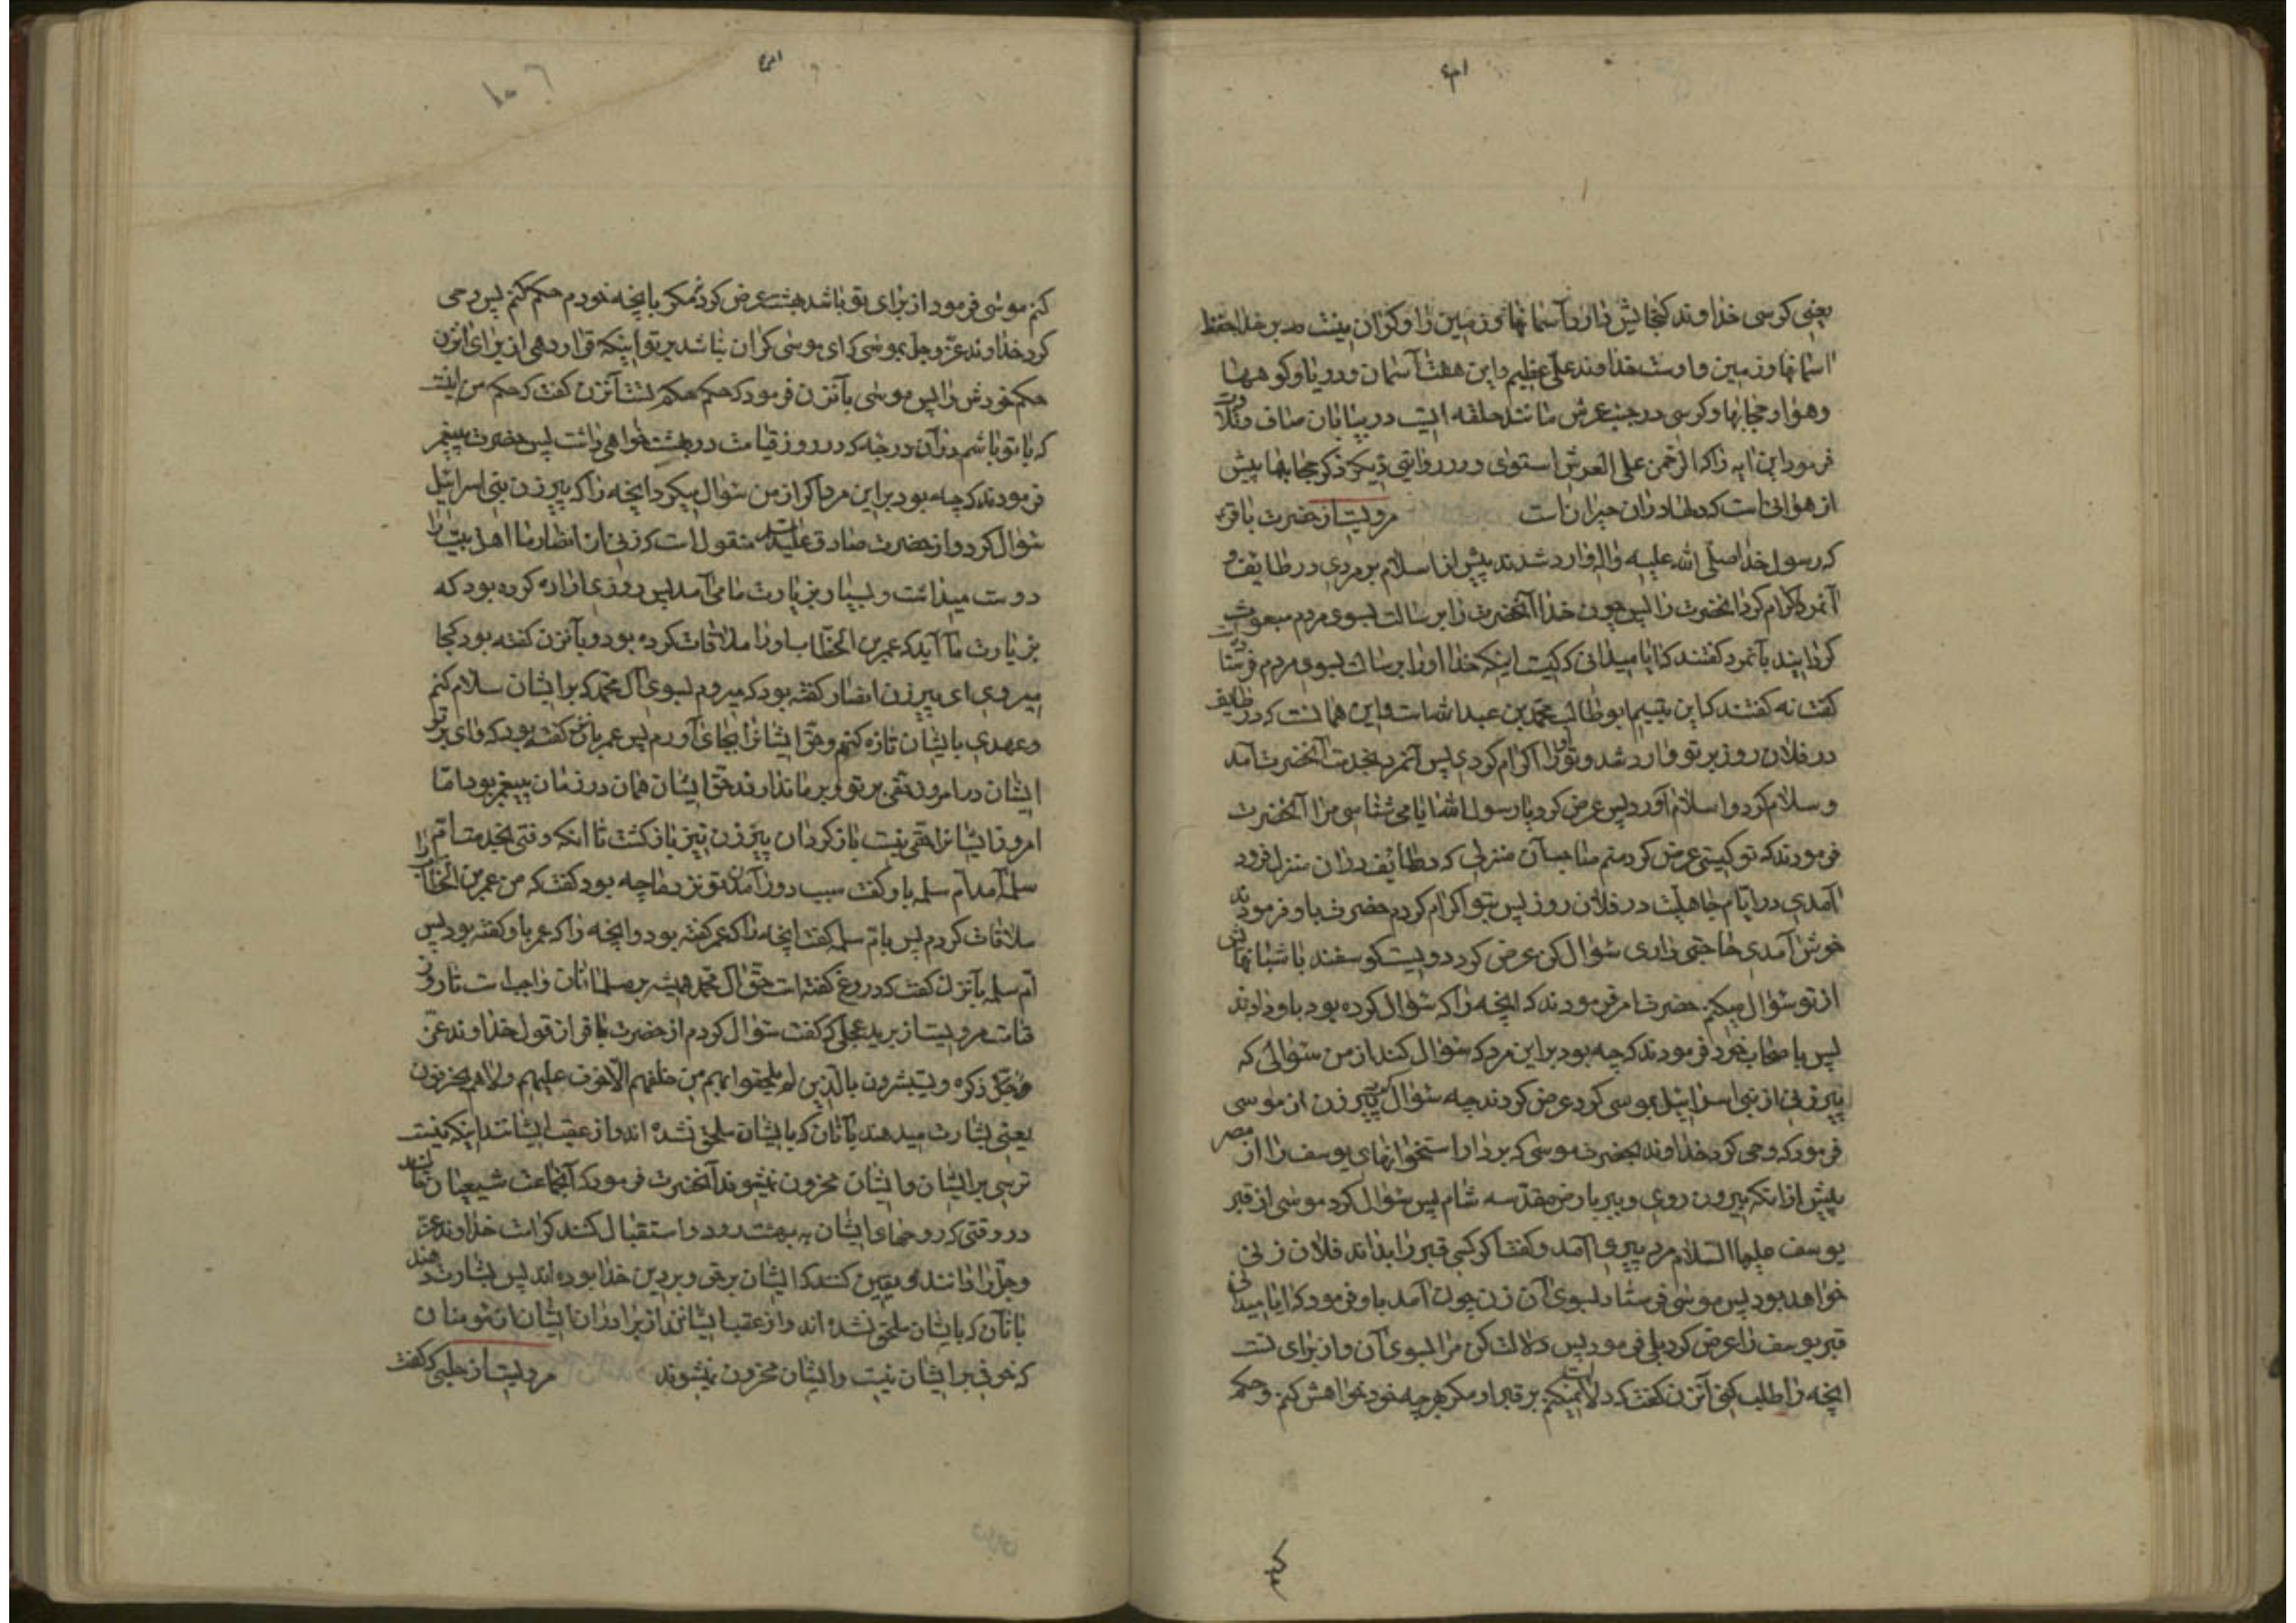 یعنی کرسی خداوند کنجایش دارد آسمانها و زمین را و کران نیست مدبر خدا حفظ
اسمانها و زمین و اوست خداوند علی عظیم و این هفت آسمان و دریا و کوهها
و هوا و حجابها و کرسی در جنب عرش مانند حلقه ایست در بیابان صاف و تلاوت
فرمود این ایه را که الرحمن علی العرش استوی و در روایتی دیکر ذکر حجابها پیش
از هوائی است که دلها در ان حیران است مرویست از حضرت باقر
که رسول خدا صلی الله علیه واله وارد شدند پیش از اسلام بر مردی در طایف و
آنمرد اکرام کرد انحضرت را پس چون خدا آنحضرت را برسالت بسوی مردم مبعوث
کردانید بآنمرد کفتند که ایا میدانی که کیست اینکه خدا او را برسالت بسوی مردم فرستاده
کفت نه کفتند که این یتیم ابو طالب محمد بن عبدالله است و این همانست که در طایف
در فلان روز بر تو وارد شد و تو او را اکرام کردی پس آنمرد بخدمت آنحضرت آمد
و سلام کرد و اسلام آورد پس عرض کرد یا رسول الله ایا می شناسی مرا آنحضرت
فرمودند که تو کیستی عرض کرد منم صاحب آن منزلی که در طایف در ان منزل فرود
آمدی در ایام جاهلیت در فلان روز پس بتو اکرام کردم حضرت باو فرمودند
خوش آمدی حاجتی داری سؤال کن عرض کرد دویست کوسفند با شبانهاش
از تو سؤال میکنم حضرت امر فرمودند که انچه را که سؤال کرده بود باو دادند
پس باصحاب خود فرمودند که چه بود بر این مرد که سؤال کند از من سؤالی که
پیرزنی از بنی اسرائیل بموسی کرد عرض کردند چه سؤال کرد پیرزن از موسی
فرمود که وحی کرد خداوند بحضرت موسی که بردار استخوانهای یوسف را از مصر
پیش از انکه بیرون روی و ببر بارض مقدسه شام پس سؤال کرد موسی از قبر
یوسف علیهما السلام مرد پیری آمد و کفت اکر کسی قبر را بداند فلان زنی
خواهد بود پس موسی فرستاد بسوی آن زن چون آمد باو فرمود که ایا میدانی
قبر یوسف را عرض کرد بلی فرمود پس دلالت کن مرا بسوی آن و از برای تست
انچه را طلب کنی آنزن کفت که دلالت نمیکنم بر قبر او مکر هر چه خود خواهش کنم و حکم
کنم موسی فرمود از برای تو باشد بهشت عرض کرد نه مکر بانچه خودم حکم کنم پس وحی
کرد خداوند عز و جل بموسی که ای موسی کران نباشد بر تو اینکه قرار دهی از برای انزن
حکم خودش را پس موسی بآنزن فرمود که حکم حکم تست آنزن کفت که حکم من اینست
که با تو باشم در آن درجه که در روز قیامت در بهشت خواهی داشت پس حضرت پیغمبر
فرمودند که چه بود بر این مرد اکر از من سؤال میکرد انچه را که پیرزن بنی اسرائیل
سؤال کرد و از حضرت صادق علیه السلام منقول است که زنی از انصار ما اهل بیت را
دوست میداشت و بسیار بزیارت ما می آمد پس روزی اراده کرده بود که
بزیارت ما آید که عمر بن الخطاب او را ملاقات کرده بود و بآنزن کفته بود کجا
میروی ای پیرزن انصار کفته بود که میروم بسوی آل محمد که بر ایشان سلام کنم
و عهدی بایشان تازه کنم و حق ایشانرا بجای آورم پس عمر بآنزن کفته بود که وای بر تو
ایشان در امروز حقی بر تو و بر ما ندارند حق ایشان همان در زمان پیغمبر بود اما
امروز ایشانرا حقی نیست باز کرد ان پیرزن نیز بازکشت تا انکه وقتی بخدمت ام
سلمه آمد ام سلمه باو کفت سبب دور آمدن تو نزد ما چه بود کفت که من عمر بن الخطاب را
ملاقات کردم پس بام سلمه کفت انچه را که عمر کفته بود و انچه را که عمر باو کفته بود پس
ام سلمه بآنزن کفت که دروغ کفته است حق آل محمد همیشه بر مسلمانان واجب است تا روز
قیامت مرویست از برید عجلی که کفت سؤال کردم از حضرت باقر از قول خداوند عز
و جل ذکره و یستبشرون بالذین لم یلحقوا بهم من خلفهم الا خوف علیهم ولا هم یحزنون
یعنی بشارت میدهند بآنان که بایشان ملحق نشده اند و از عقب ایشانند اینکه نیست
ترسی بر ایشان و ایشان محزون نمیشوند آنحضرت فرمود که آنجماعت شیعیان مااند
در وقتی که روحهای ایشان به بهشت رود و استقبال کنند کرامت خداوند عز
و جل را دانند و یقین کنند که ایشان بر حق و بر دین خدا بوده اند پس بشارت دهند
بانان که بایشان ملحق نشده اند و از عقب ایشانند از برادران ایشان از مؤمنان
که خوفی بر ایشان نیست و ایشان محزون نمیشوند مرویست از حلبی که کفت